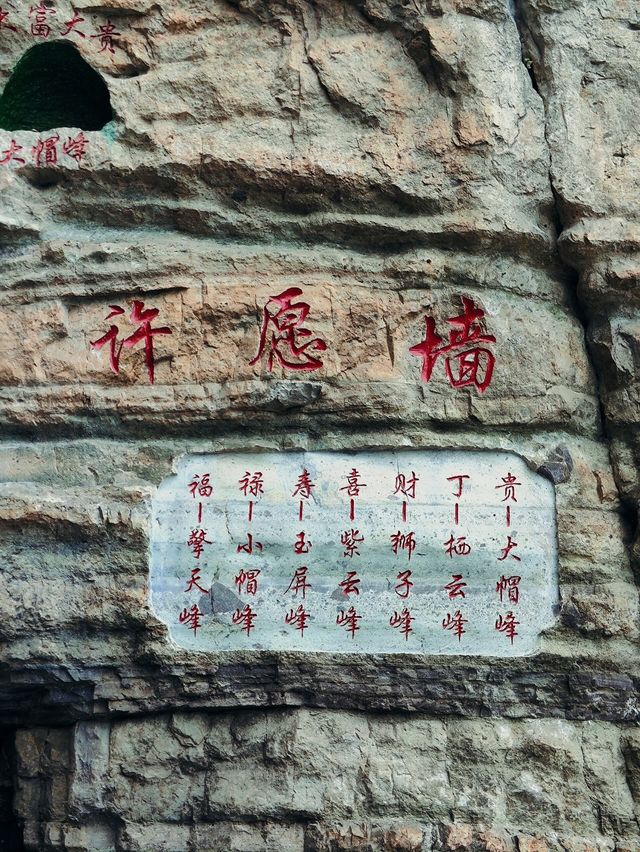 大富大贵
大帽峰
许愿墙
福—擎天峰
禄—小帽峰
寿—玉屏峰
喜—紫云峰
财—狮子峰
丁—栖云峰
贵—大帽峰